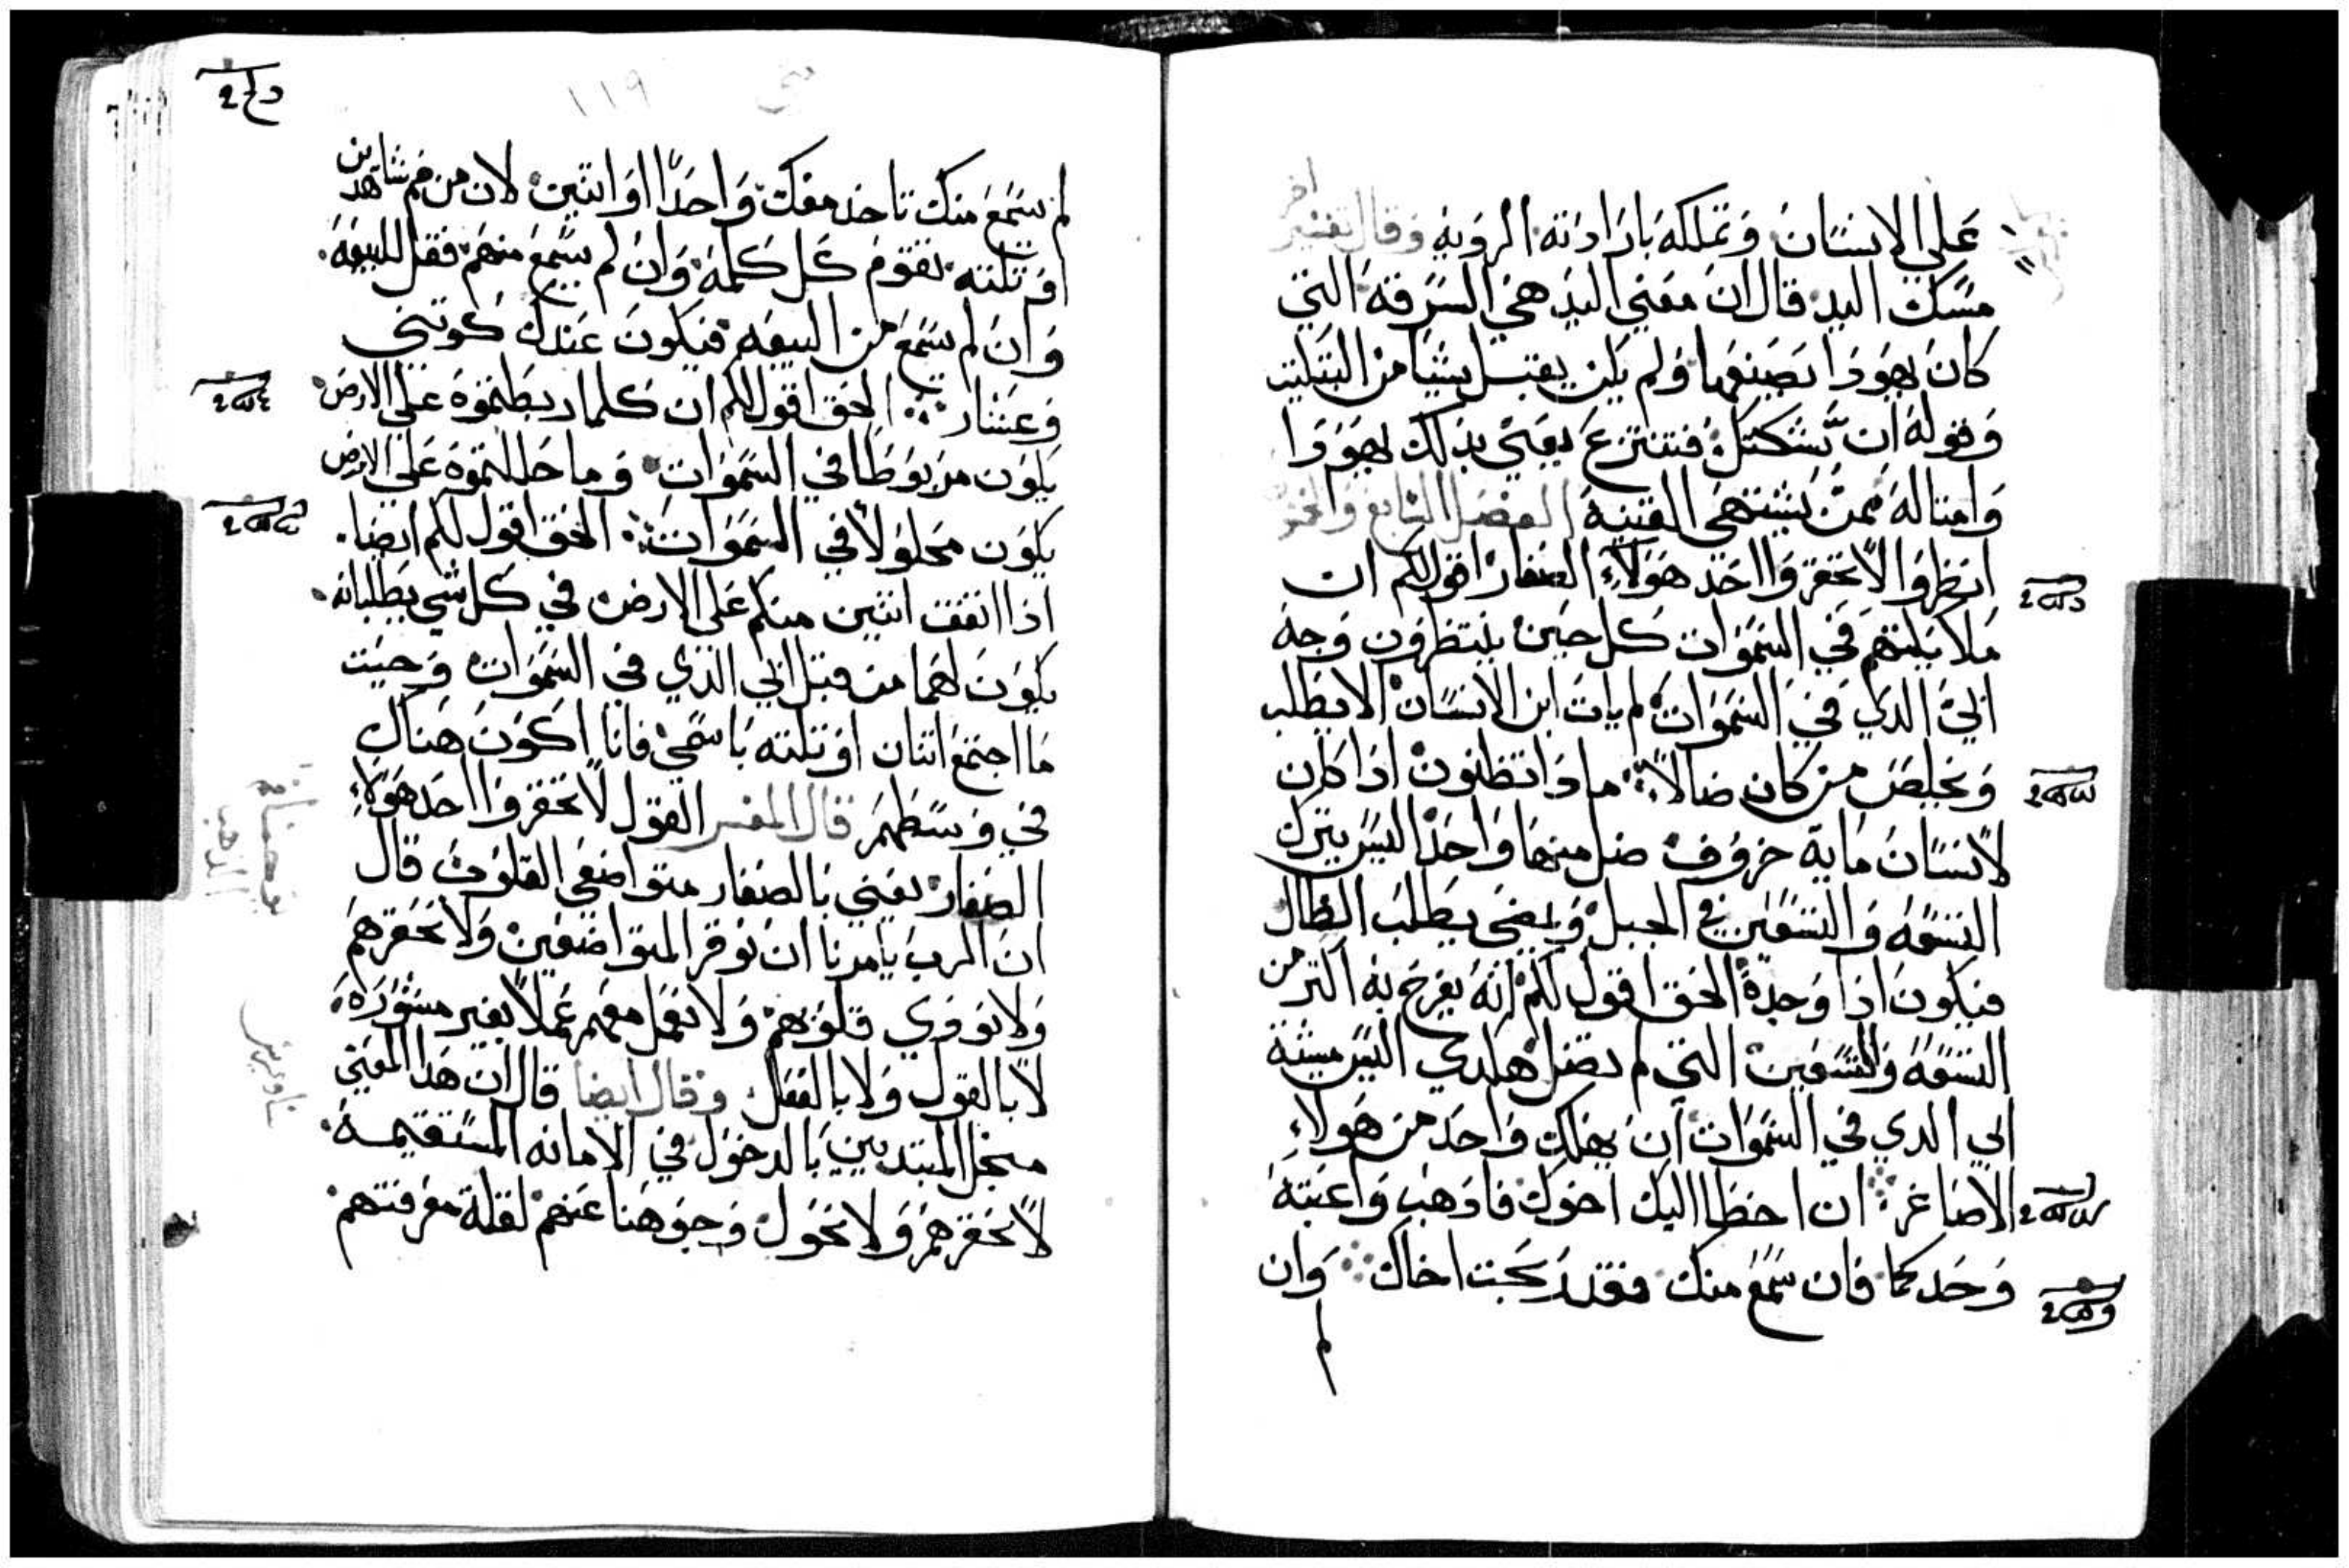 على الانسان وتملكه بارادته الرديه وقال تفسير اخر
مسك اليد قال ان معني اليد هي السرقه التي
كان يهودا يصنعها ولم يكن يقبل شيا من التبكيت
وقوله ان تشكك فتنتزع يعني بذلك يهودا
وامتاله ممن يشتهي القنيه الفصل السابع والخمسون
انظروا الا تحقروا احد هولاء الصغار اقول لكم ان
ملايكتهم في السموات كل حين ينتظرون وجه
ابي الدي في السموات لم يات ابن الانسان الا يطلب
ويخلص من كان ضالاً مادا تظنون ادا كان
لانسان ماية خروف ضل منها واحد اليس يترك
التسعه والتسعين في الجبل ويمضي يطلب الضال
فيكون ادا وجده الحق اقول لكم انه يفرح به اكثر من
التسعه والتسعين التي لم تضل هكدي اليس مشية
ابي الدي في السموات ان يهلك واحد من هولاء
الاصاغر ان اخطا اليك اخوك فادهب واعتبه
وحدكما فان سمع منك فقد ربحت اخاك وان
لم
١١٩
لم يسمع منك تاخد معك واحداً او اتنين لان من فم شاهدين
او تلته تقوم كل كلمه وان لم يسمع منهم فقل للبيعه
وان لم يسمع من البيعه فيكون عندك كوتني
وعشار الحق اقول لكم ان كلما ربطتموه على الارض
يكون مربوطا في السموات وما حللتموه على الارض
يكون محلولاً في السموات الحق اقول لكم ايضا
ادا اتفق اتنين منكم على الارض في كل شي يطلبانه
يكون لهما من قبل ابي الدي في السموات وحيت
ما اجتمع اتنان او تلته باسمي فانا اكون هناك
في وسطهم قال المفسر القول لا تحقروا احد هولاء
الصغار يعني بالصغار متواضعي القلوب قال
ان الرب يامرنا ان نوقر المتواضعين ولا نحقرهم
ولا نودي قلوبهم ولا نعمل معهم عملاً بغير مشوره
لا بالقول ولا بالفعل وقال ايضا قال ان هدا المعني
من اجل المبتديين بالدخول في الامانه المستقيمه
لا نحقرهم ولا نحول وجوهنا عنهم لقلة معرفتهم